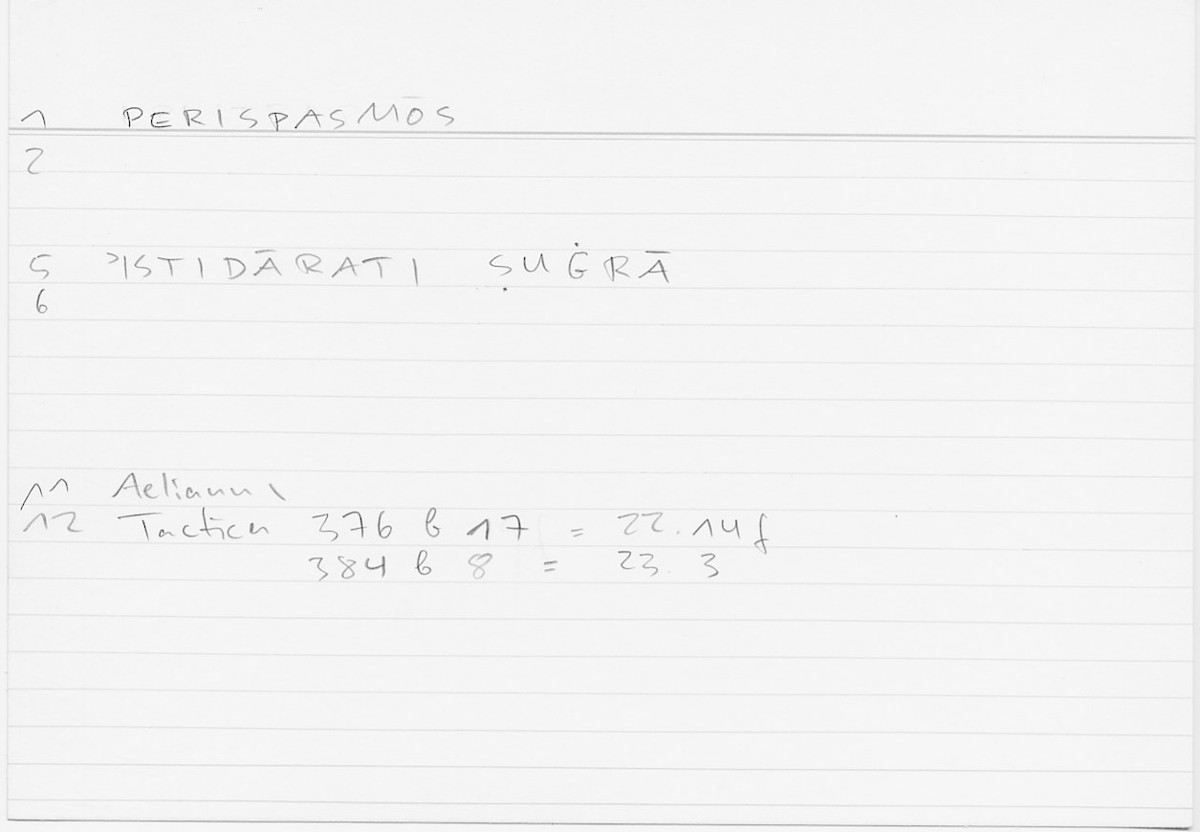 1 PERISPASMŌS
2
5 ʾISTIDĀRATI ṢUĠRĀ
6
11 Aelianus
12 Tactica 376 b 17 = 22.14f
384 b 8 = 23.3